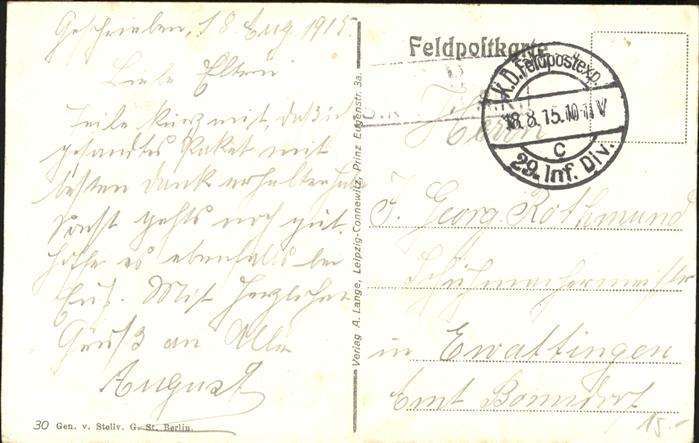 Geschrieben, 18 Aug 1915
Liebe Eltern
Teile kurz mit daß ich
gesandtes Paket mit
besten Dank erhalten habe
Sonst gehts noch gut.
Hoffe es ebenfalls bei
Euch. Mit herzlichen
Gruß an Alle
August
30 Gen. v. Stellv. G. St. Berlin.
Verlag A. Lange, Leipzig-Connewitz, Prinz Eugenstr. 3a.
Feldpostkarte
K.D. Feldpostexp.
18.8.15. 10-11 V
c
29. Inf. Div.
Herrn
J. Georg Rothmund
Schuhmachermeister
in Ewattingen
Amt Bonndorf
15.-